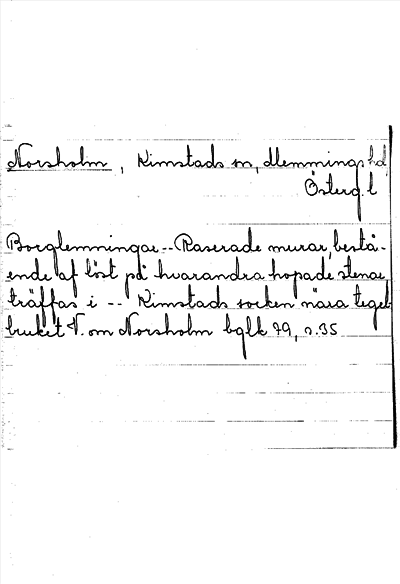 Norsholm, Kimstads sn, Memmings hd,
Österg. l
Borglemningar -- Raserade murar, bestå-
ende af löst på hvarandra hopade stenar
träffas i -- Kimstads socken nära tegel-
bruket V. om Norsholm bglk 79, s. 35